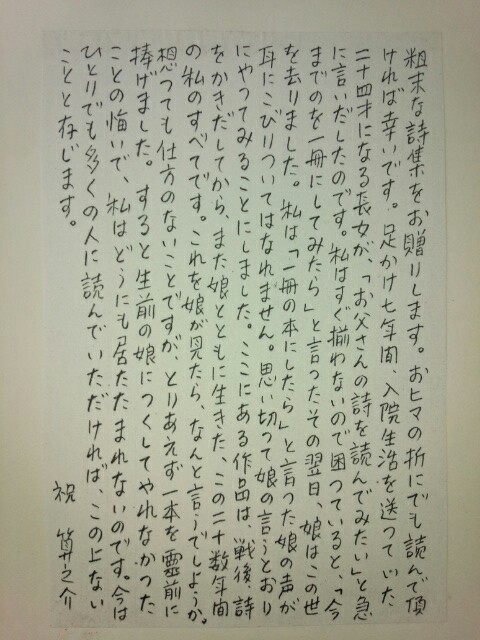 粗末な詩集をお贈りします。おヒマの折にでも読んで頂
ければ幸いです。足かけ七年間、入院生活を送つていた
二十四才になる長女が、「お父さんの詩を読んでみたい」と急
に言いだしたのです。私はすぐ揃わないので困つていると、「今
までのを一冊にしてみたら」と言つたその翌日、娘はこの世
を去りました。私は「一冊の本にしたら」と言つた娘の声が
耳にこびりついてはなれません。思い切つて娘の言うとおり
にやつてみることにしました。ここにある作品は、戦後、詩
をかきだしてから、また娘とともに生きた、この二十数年間
の私のすべてです。これを娘が見たら、なんと言うでしようか。
想つても仕方のないことですが、とりあえず一本を霊前に
捧げました。すると生前の娘につくしてやれなかつた
ことの悔いで、私はどうにも居たたまれないのです。今は
ひとりでも多くの人に読んでいただければ、この上ない
ことと存じます。
祝 算之介